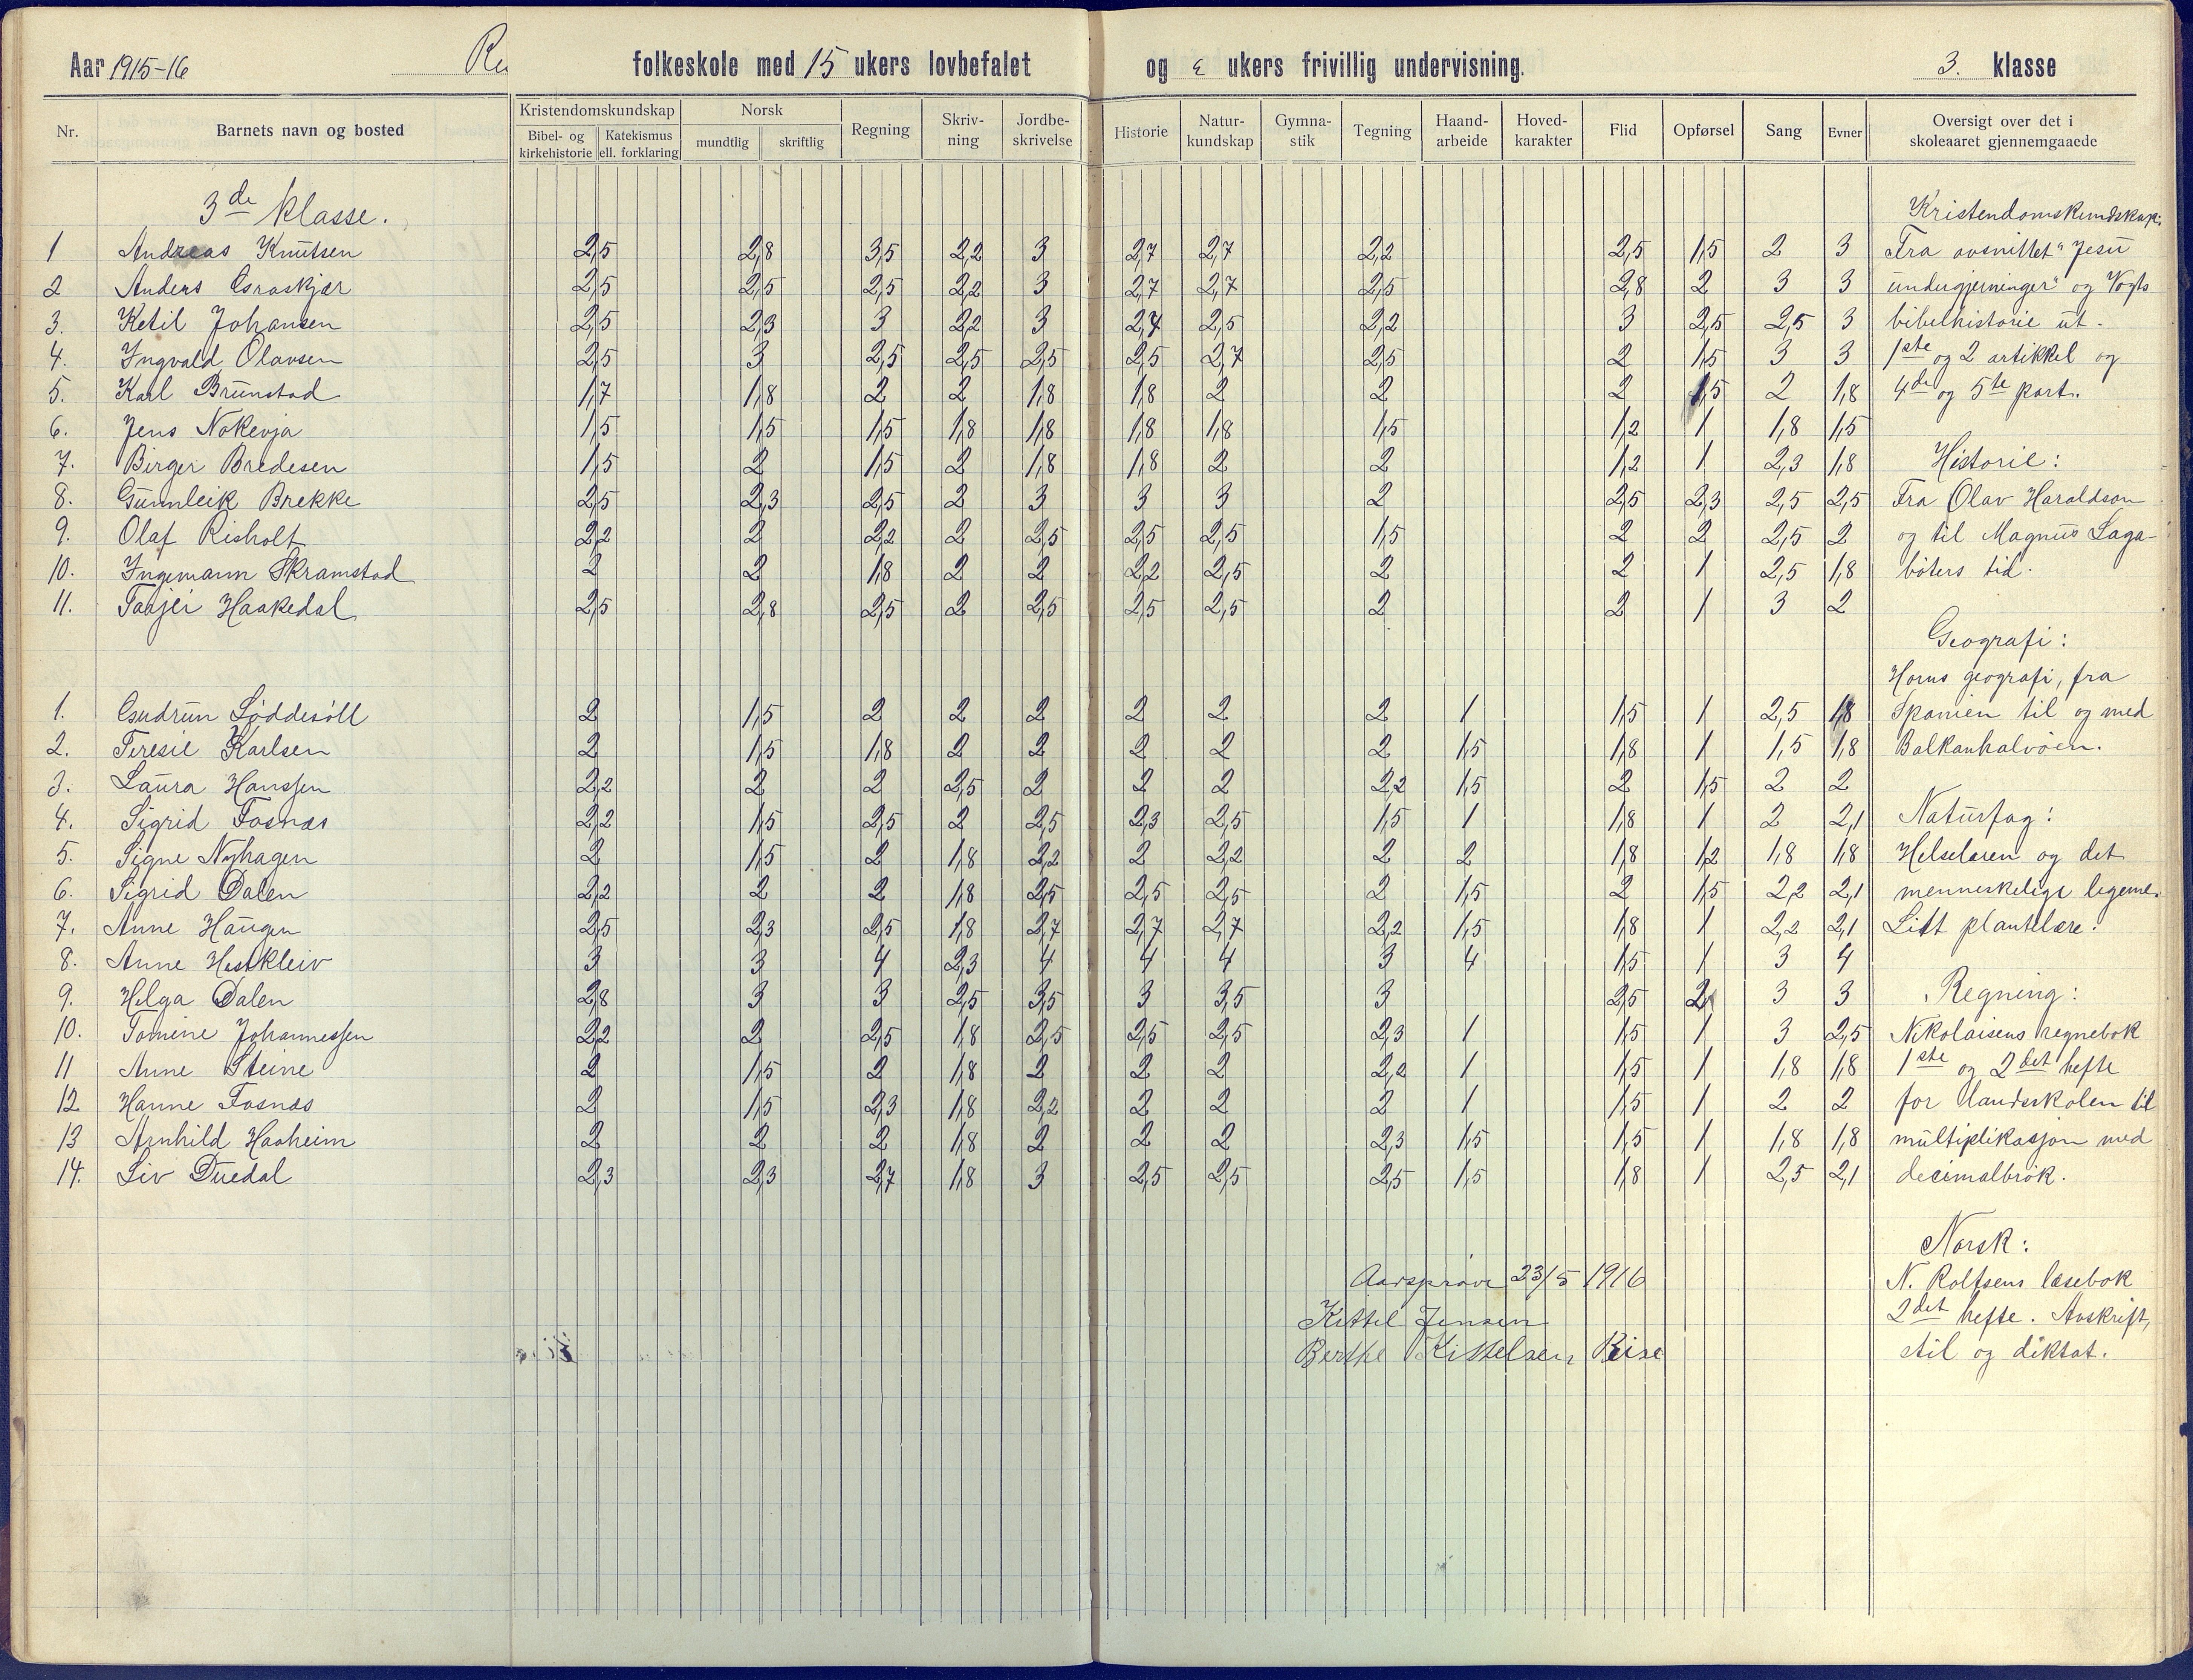 Aar 1915-16 folkeskole med 15 ukers lovbefalet og ukers frivillig undervisning. 3. klasse
Nr. Barnets navn og bosted Kristendomskundskap Bibel- og kirkehistorie Katekismus ell. forklaring Norsk mundtlig skriftlig Regning Skriv-ning Jordbe-skrivelse Historie Natur-kundskap Gymna-stik Tegning Haand-arbeide Hoved-karakter Flid Opførsel Sang Evner Oversigt over det i skoleaaret gjennemgaaede
3de klasse.
1 Andreas Knutsen 2,5 2,8 3,5 2,2 3 2,7 2,7 2,2 2,5 1,5 2 3
2 Anders 2,5 2,5 2,5 2,2 3 2,7 2,7 2,5 2,8 2 3 3
3. Ketil Johansen 2,5 2,3 3 2,2 3 2,7 2,5 2,2 3 2,5 2,5 3
4. Ingvald Olavsen 2,5 3 2,5 2,5 2,5 2,5 2,7 2,5 2 1,5 3 3
5. Karl Brunstad 1,7 1,8 2 2 1,8 1,8 2 2 2 1,5 2 1,8
6. Jens Nokevja 1,5 1,5 1,5 1,8 1,8 1,8 1,8 1,5 1,2 1 1,8 1,5
7. Birger Bredesen 1,5 2 1,5 2 1,8 1,8 2 2 1,2 1 2,3 1,8
8. Gunnleik Brekke 2,5 2,3 2,5 2 3 3 3 2 2,5 2,3 2,5 2,5
9. Olaf Risholt 2,2 2 2,2 2 2,5 2,5 2,5 1,5 2 2 2,5 2
10. Ingemann Skramstad 2 2 1,8 2 2 2,2 2,5 2 2 1 2,5 1,8
11. Taajei Haakedal 2,5 2,8 2,5 2 2,5 2,5 2,5 2 2 1 3 2
1. Gudrun Løddesöll 2 1,5 2 2 2 2 2 2 1 1,5 1 2,5 1,8
2. Teresie Karlsen 2 1,5 1,8 2 2 2 2 2 1,5 1,8 1 1,5 1,8
3. Laura Hanssen 2,2 2 2 2,5 2 2 2 2,2 1,5 2 1,5 2 2
4. Sigrid Fosnæs 2,2 1,5 2,5 2 2,5 2,3 2,5 1,5 1 1,8 1 2 2,1
5. Signe Nyhagen 2 1,5 2 1,8 2,2 2 2,2 2 2 1,8 1,2 1,8 1,8
6. Sigrid Dalen 2,2 2 2 1,8 2,5 2,5 2,5 2 1,5 2 1,5 2,2 2,1
7. Anne Haugen 2,5 2,3 2,5 1,8 2,7 2,7 2,7 2,2 1,5 1,8 1 2,2 2,1
8. Anne Hestkleiv 3 3 4 2,3 4 4 4 3 4 1,5 1 3 4
9. Helga Dalen 2,8 3 3 2,5 3,5 3 3,5 3 2,5 2 3 3
10. Tomine Johannessen 2,2 2 2,5 1,8 2,5 2,5 2,5 2,3 1 1,5 1 3 2,5
11 Anne Steine 2 1,5 2 1,8 2 2 2 2,2 1 1,5 1 1,8 1,8
12 Hanne Fosnæs 2 1,5 2,3 1,8 2,2 2 2 2 1 1,5 1 2 2
13 Arnhild Haaheim 2 2 2 1,8 2 2 2 2,3 1,5 1,5 1 1,8 1,8
14. Liv Duedal 2,3 2,3 2,7 1,8 3 2,5 2,5 2,5 1,5 1,8 1 2,5 2,1
Aarsprøve 23/5 1916
Kittel Jensen
Berthe Kittelsen Rise
Kristendomskundskap:
Fra avsnittet "Jesu
undergjerninger" og Vogts
bibelhistorie ut.
1ste og 2 artikkel og
4de og 5te part.
Historie:
Fra Olav Haraldson
og til Magnus Laga-
bøters tid.
Geografi:
Horns geografi, fra
Spanien til og med
Balkanhalvøen.
Naturfag:
Helselæren og det
menneskelige legeme.
Litt plantelære.
Regning:
Nikolaisens regnebok
1ste og 2det hefte
for landsskolen til
multiplikasjon med
decimalbrøk.
Norsk:
N. Rolfsens læsebok
2det hefte. Avskrift,
stil og diktat.